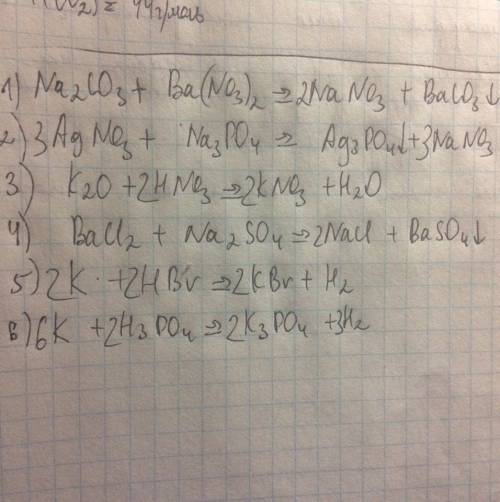 (CO2) = 44 г/моль
1) Na2CO3 + Ba(NO3)2 ⇒ 2NaNO3 + BaCO3↓
2) 3AgNO3 + Na3PO4 ⇒ Ag3PO4↓ + 3NaNO3
3) K2O + 2HNO3 ⇒ 2KNO3 + H2O
4) BaCl2 + Na2SO4 ⇒ 2NaCl + BaSO4↓
5) 2K + 2HBr ⇒ 2KBr + H2
6) 6K + 2H3PO4 ⇒ 2K3PO4 + 3H2